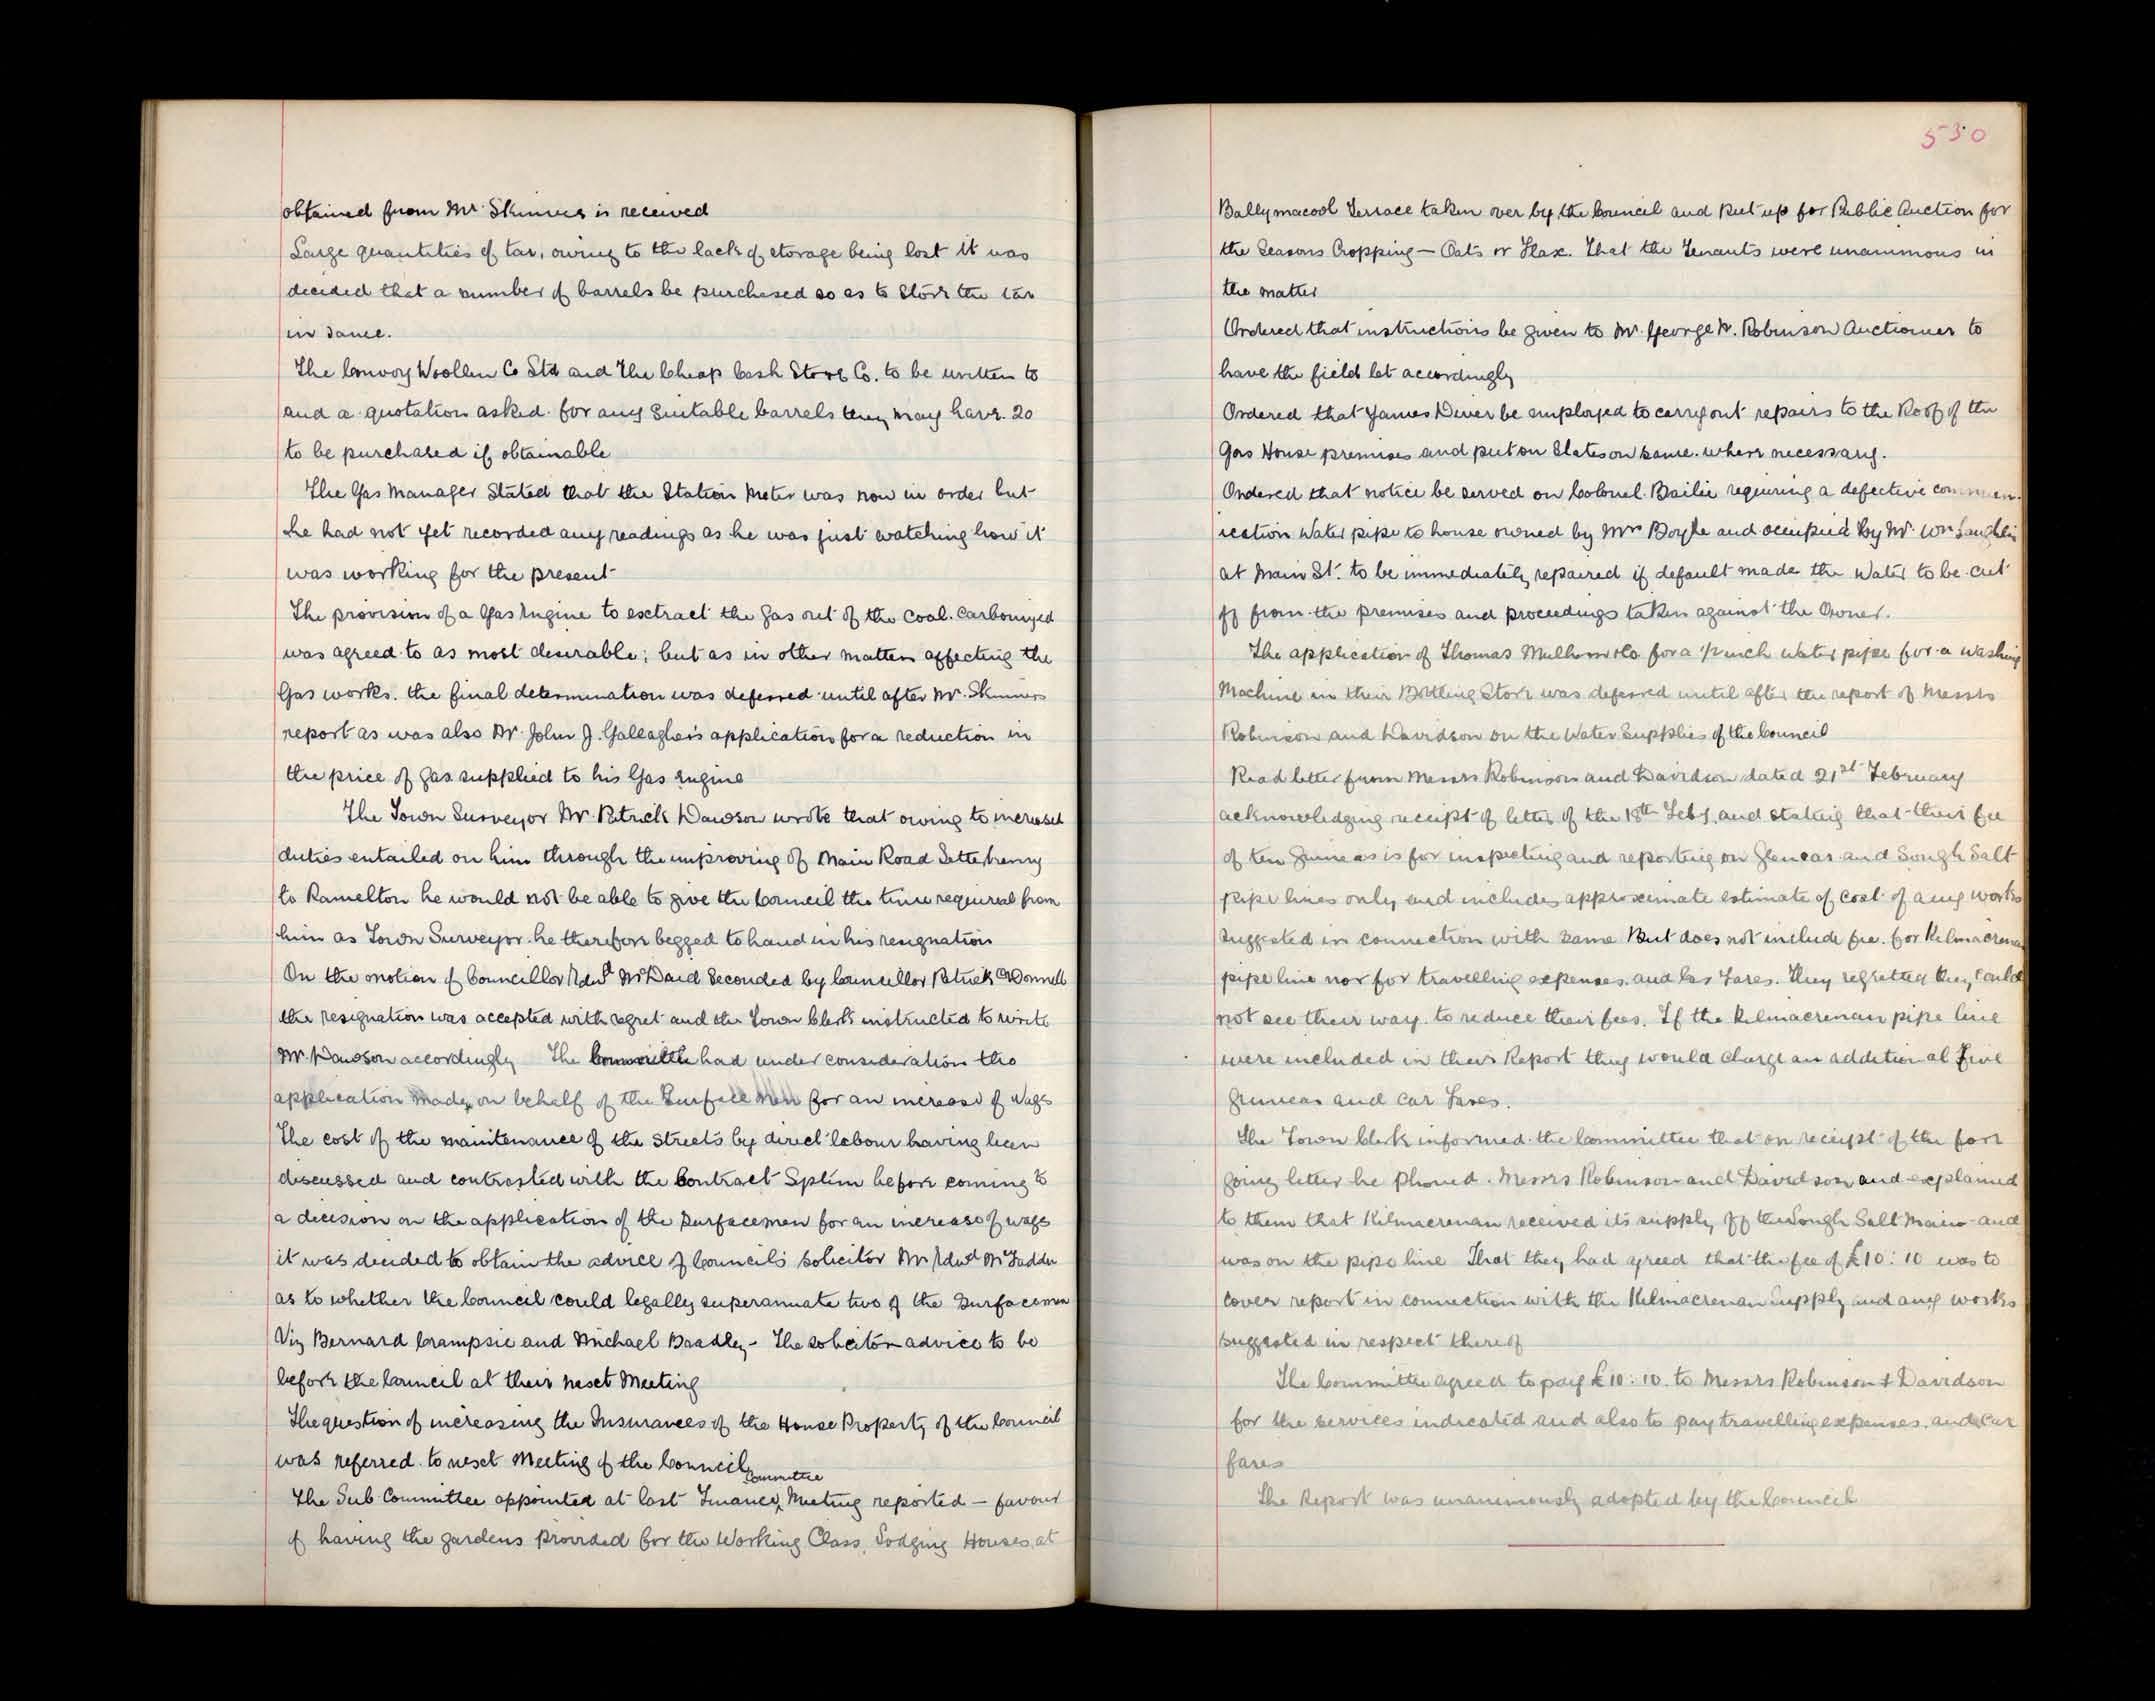 obtained from Mr. Skinner is received
Large quantities of tar, owing to the lack of storage being lost it was
decided that a number of barrels be purchased so as to store the tar
in same.
The Convoy Woollen Co Ltd and The Cheap Cash Store Co. to be written to
and a quotation asked for any suitable barrels they may have. 20
to be purchased if obtainable
The Gas Manager Stated that the Station Meter was now in order but
he had not yet recorded any readings as he was just watching how it
was working for the present
The provision of a Gas Engine to extract the gas out of the coal. Carbonized
was agreed to as most desirable; but as in other matters affecting the
Gas works. the final determination was deferred until after Mr. Skinners
report as was also Mr. John J. Gallagher's application for a reduction in
the price of gas supplied to his Gas Engine
The Town Surveyor Mr. Patrick Dawson wrote that owing to increased
duties entailed on him through the improving of Main Road Letterkenny
to Ramelton he would not be able to give the Council the time required from
him as Town Surveyor. he therefore begged to hand in his resignation
On the motion of Councillor Edwd McDaid Seconded by Councillor Patrick O'Donnell
the resignation was accepted with regret and the Town Clerk instructed to write
Mr. Dawson accordingly The Committee had under consideration the
application made on behalf of the Surface men for an increase of wages
The cost of the maintenance of the streets by direct labour having been
discussed and contrasted with the Contract System before coming to
a decision on the application of the Surfacemen for an increase of wages
it was decided to obtain the advice of Council's solicitor Mr Edwd McFadden
as to whether the Council could legally superannuate two of the Surfacemen
Viz Bernard Crampsie and Michael Baadley - The solicitors advice to be
before the Council at their next Meeting
The question of increasing the Insurances of the House Property of the Council
was referred to next Meeting of the Council
The Sub Committee appointed at last Finance Committee Meeting reported – favour
of having the gardens provided for the Working Class, Lodging Houses, at
530
Ballymacool Terrace taken over by the Council and put up for Public Auction for
the Seasons Cropping – Oats or Flax. That the Tenants were unanimous in
the matter
Ordered that instructions be given to Mr. George W. Robinson Auctioneer to
have the field let accordingly
Ordered that James Diver be employed to carry out repairs to the Roof of the
Gas House premises and put on Slates on same. where necessary.
Ordered that notice be served on Colonel Bailie requiring a defective commun-
ication Water pipe to house owned by Mrs Boyle and occupied by Mr. Wm Laughlin
at Main St. to be immediately repaired if default made the Water to be cut
off from the premises and proceedings taken against the Owner.
The application of Thomas Mulhern & Co for a ½ inch water pipe for a washing
Machine in their Bottling Store was deferred until after the report of Messrs
Robinson and Davidson on the Water Supplies of the Council
Read letter from Messrs Robinson and Davidson dated 21st February
acknowledging receipt of letter of the 18th Feby. and stating that their fee
of ten guineas is for inspecting and reporting on Glencar and Lough Salt
pipe lines only and includes approximate estimate of cost of any works
suggested in connection with same But does not include fee. for Kilmacrenan
pipe line nor for travelling expenses. and Car Fares. They regretted they could
not see their way to reduce their fees. If the Kilmacrenan pipe line
were included in their Report they would charge an additional five
guineas and Car Fares.
The Town Clerk informed the Committee that on receipt of the fore
going letter he phoned. Messrs Robinson and Davidson and explained
to them that Kilmacrenan received its supply off the Lough Salt Main and
was on the pipe line That they had agreed that the fee of £10:10 was to
cover report in connection with the Kilmacrenan Supply and any works
suggested in respect thereof
The Committee agreed to pay £10:10. to Messrs Robinson & Davidson
for the services indicated and also to pay travelling expenses. and Car
fares
The Report was unanimously adopted by the Council